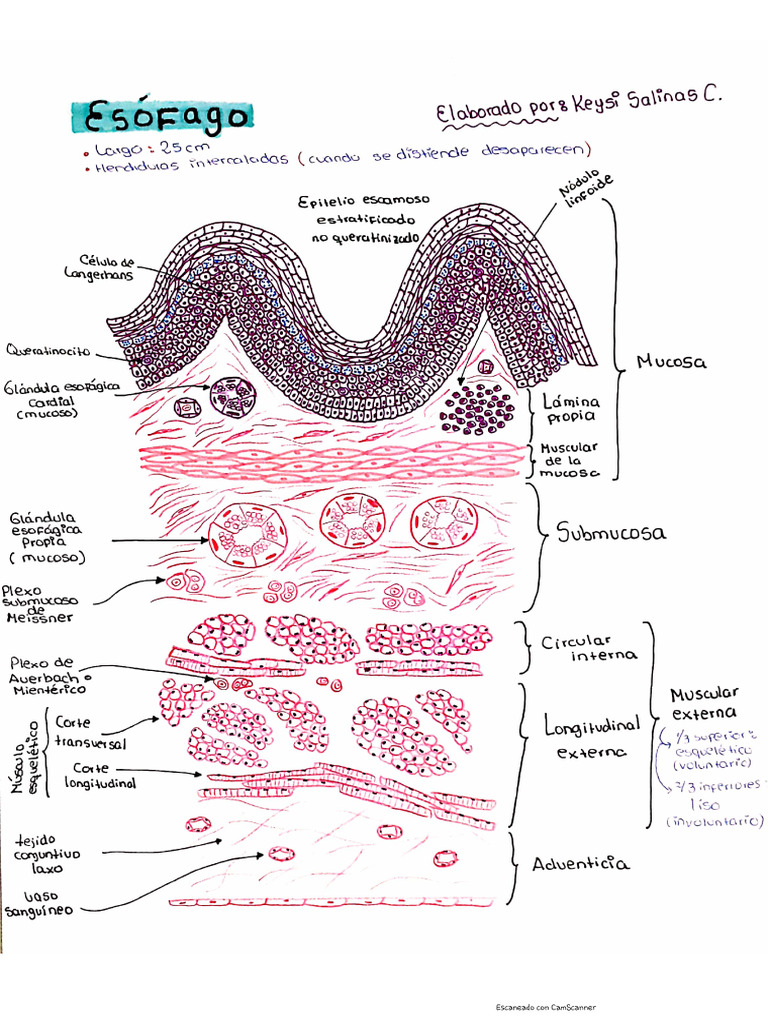 Esófago
Elaborado por: Keysi Salinas C.
• Largo: 25cm
• Hendiduras intercaladas (cuando se distiende desaparecen)
Epitelio escamoso
estratificado
no queratinizado
Nódulo
linfoide
Célula de
Langerhans
Queratinocito
Glándula esofágica
Cardial
(mucoso)
Mucosa
Lámina
propia
Muscular
de la
mucosa
Glándula
esofágica
Propia
(mucoso)
Submucosa
Plexo
submucoso
de
Meissner
Circular
interna
Plexo de
Auerbach o
Mientérico
Músculo
esquelético
Corte
transversal
Corte
longitudinal
Longitudinal
externa
Muscular
externa
1/3 superior:
esquelético
(voluntario)
2/3 inferiores:
liso
(involuntario)
tejido
conjuntivo
laxo
Adventicia
vaso
sanguíneo
Escaneado con CamScanner